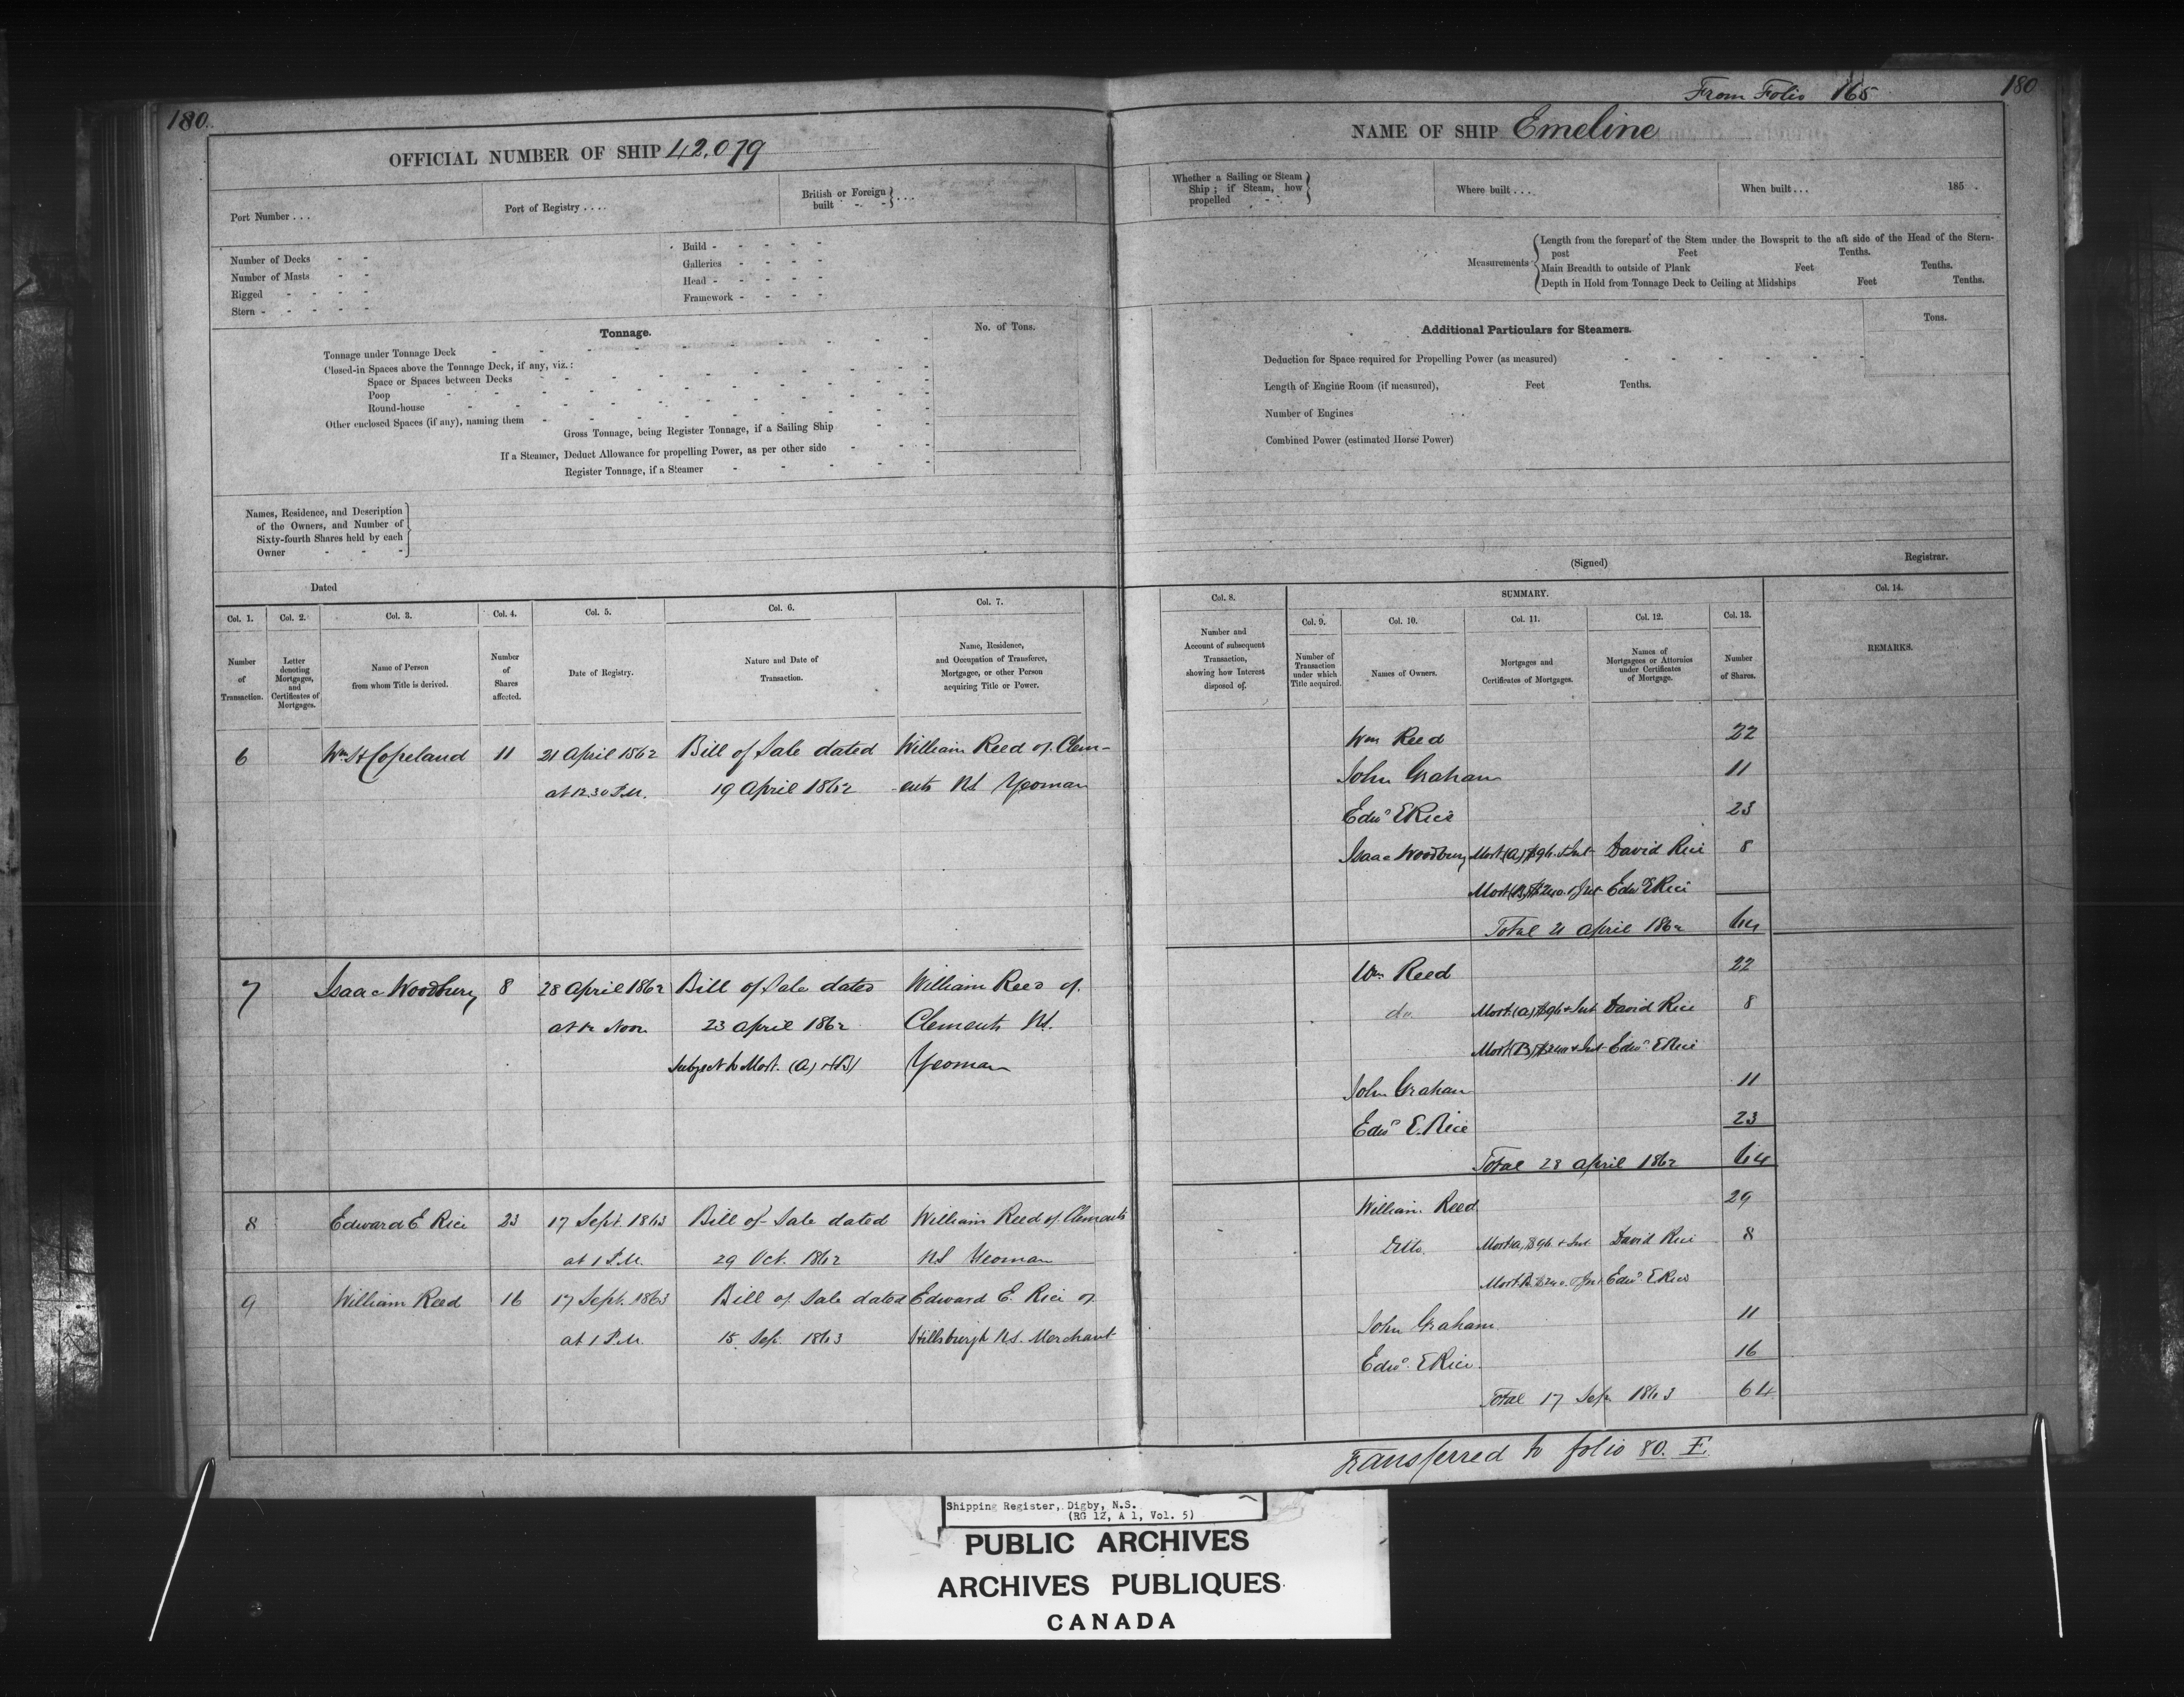 180.
From Folio 165
180
OFFICIAL NUMBER OF SHIP 42,079
NAME OF SHIP Emeline
Port Number . . .
Port of Registry . . . .
British or Foreign built - - } . . .
Whether a Sailing or Steam Ship; if Steam, how propelled - - }
Where built . . .
When built . . .
185 .
Number of Decks - -
Number of Masts - -
Rigged - - - -
Stern - - - - -
Build - - - - -
Galleries - - - -
Head - - - - -
Framework - - - -
Measurements
Length from the forepart of the Stem under the Bowsprit to the aft side of the Head of the Stern-
post Feet Tenths.
Main Breadth to outside of Plank Feet Tenths.
Depth in Hold from Tonnage Deck to Ceiling at Midships Feet Tenths.
Tonnage.
No. of Tons.
Tonnage under Tonnage Deck
Closed-in Spaces above the Tonnage Deck, if any, viz.:
Space or Spaces between Decks
Poop
Round-house
Other enclosed Spaces (if any), naming them
Gross Tonnage, being Register Tonnage, if a Sailing Ship
If a Steamer, Deduct Allowance for propelling Power, as per other side
Register Tonnage, if a Steamer
Additional Particulars for Steamers.
Tons.
Deduction for Space required for Propelling Power (as measured)
Length of Engine Room (if measured), Feet Tenths.
Number of Engines
Combined Power (estimated Horse Power)
Names, Residence, and Description
of the Owners, and Number of
Sixty-fourth Shares held by each
Owner - - -
Dated
(Signed)
Registrar.
Col. 1.
Number
of
Transaction.
Col. 2.
Letter
denoting
Mortgages,
and
Certificates of
Mortgages.
Col. 3.
Name of Person
from whom Title is derived.
Col. 4.
Number
of
Shares
affected.
Col. 5.
Date of Registry.
Col. 6.
Nature and Date of
Transaction.
Col. 7.
Name, Residence,
and Occupation of Transferee,
Mortgagee, or other Person
acquiring Title or Power.
Col. 8.
Number and
Account of subsequent
Transaction,
showing how Interest
disposed of.
SUMMARY.
Col. 9.
Number of
Transaction
under which
Title acquired.
Col. 10.
Names of Owners.
Col. 11.
Mortgages and
Certificates of Mortgages.
Col. 12.
Names of
Mortgagees or Attornies
under Certificates
of Mortgage.
Col. 13.
Number
of Shares.
Col. 14.
REMARKS.
6 Wm H Copeland 11 21 April 1862 Bill of Sale dated William Reed of Clem-
at 12.30 P.M. 19 April 1862 -ents NS Yeoman
Wm Reed 22
John Graham 11
Edwd E Rice 23
Isaac Woodbury Mort (A) $96 + Int David Rice 8
Mort (B) $240 + Int Edw E Rice
Total 21 April 1862 64
7 Isaac Woodbury 8 28 April 1862 Bill of Sale dated William Reed of
at 12 Noon 23 April 1862 Clements NS.
Subject to Mort. (A) + (B) Yeoman
Wm Reed 22
do. Mort (A) $96 + Int David Rice 8
Mort (B) $240 + Int Edwd E Rice
John Graham 11
Edwd E. Rice 23
Total 28 April 1862 64
8 Edward E Rice 23 17 Sept. 1863 Bill of Sale dated William Reed of Clements
at 1 P.M. 29 Oct. 1862 NS Yeoman
9 William Reed 16 17 Sept. 1863 Bill of Sale dated Edward E. Rice of
at 1 P.M. 15 Sep. 1863 Hillsburgh NS. Merchant
William Reed 29
Ditto. Mort A, $96 + Int David Rice 8
Mort B $240 + Int Edwd E Rice
John Graham 11
Edwd. E Rice 16
Total 17 Sep 1863 64
Transferred to folio 80. E.
Shipping Register, Digby, N.S.
(RG 12, A 1, Vol. 5)
PUBLIC ARCHIVES
ARCHIVES PUBLIQUES
CANADA